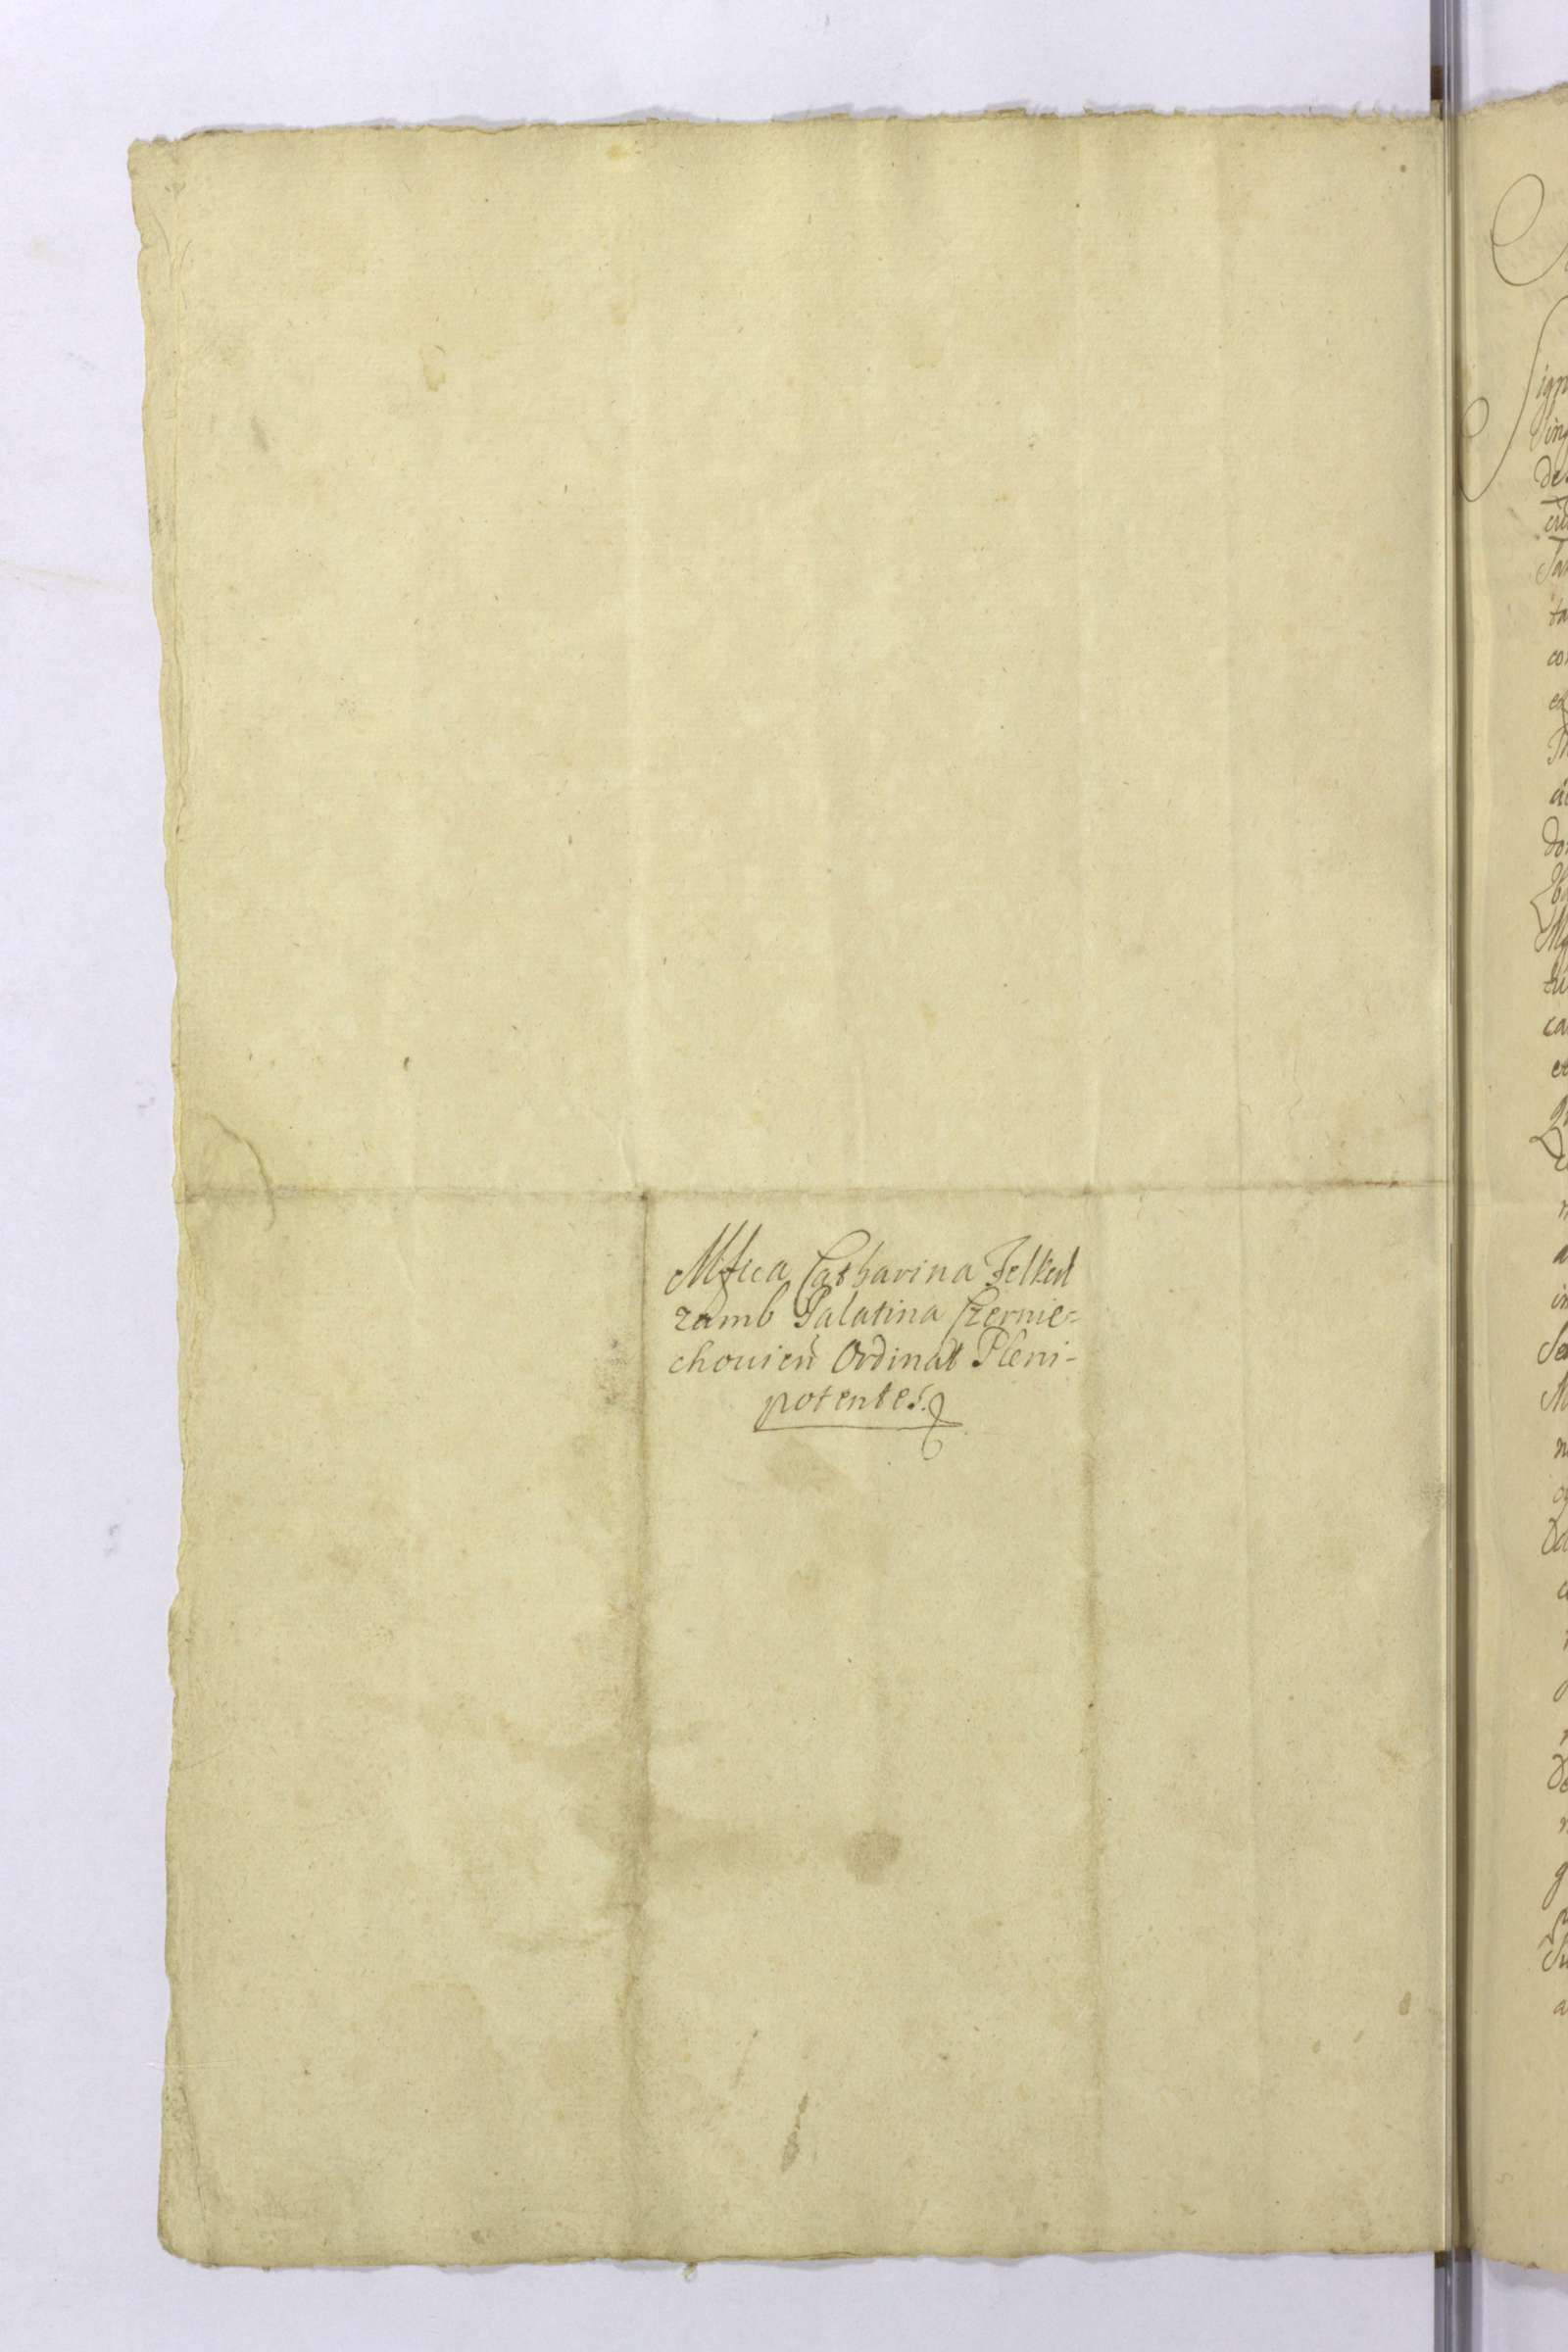 Mfica Catharina Felked
zamb Palatina Czernie=
chovien Ordinat Pleni-
potentes.